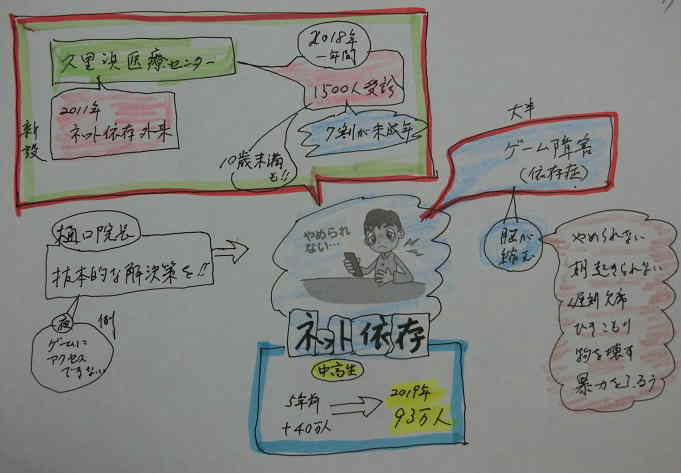 久里浜医療センター
2011年
ネット依存外来
新設
2018年
一年間
1500人受診
7割が未成年
10歳未満
も!!
大半
ゲーム障害
(依存症)
脳が
縮む
やめられない
朝起きられない
遅刻欠席
ひきこもり
物を壊す
暴力をふるう
樋口院長
抜本的な解決策を!!
夜
例
ゲームに
アクセス
できない
やめられ
ない…
ネット依存
中高生
5年前
+40万人
2019年
93万人